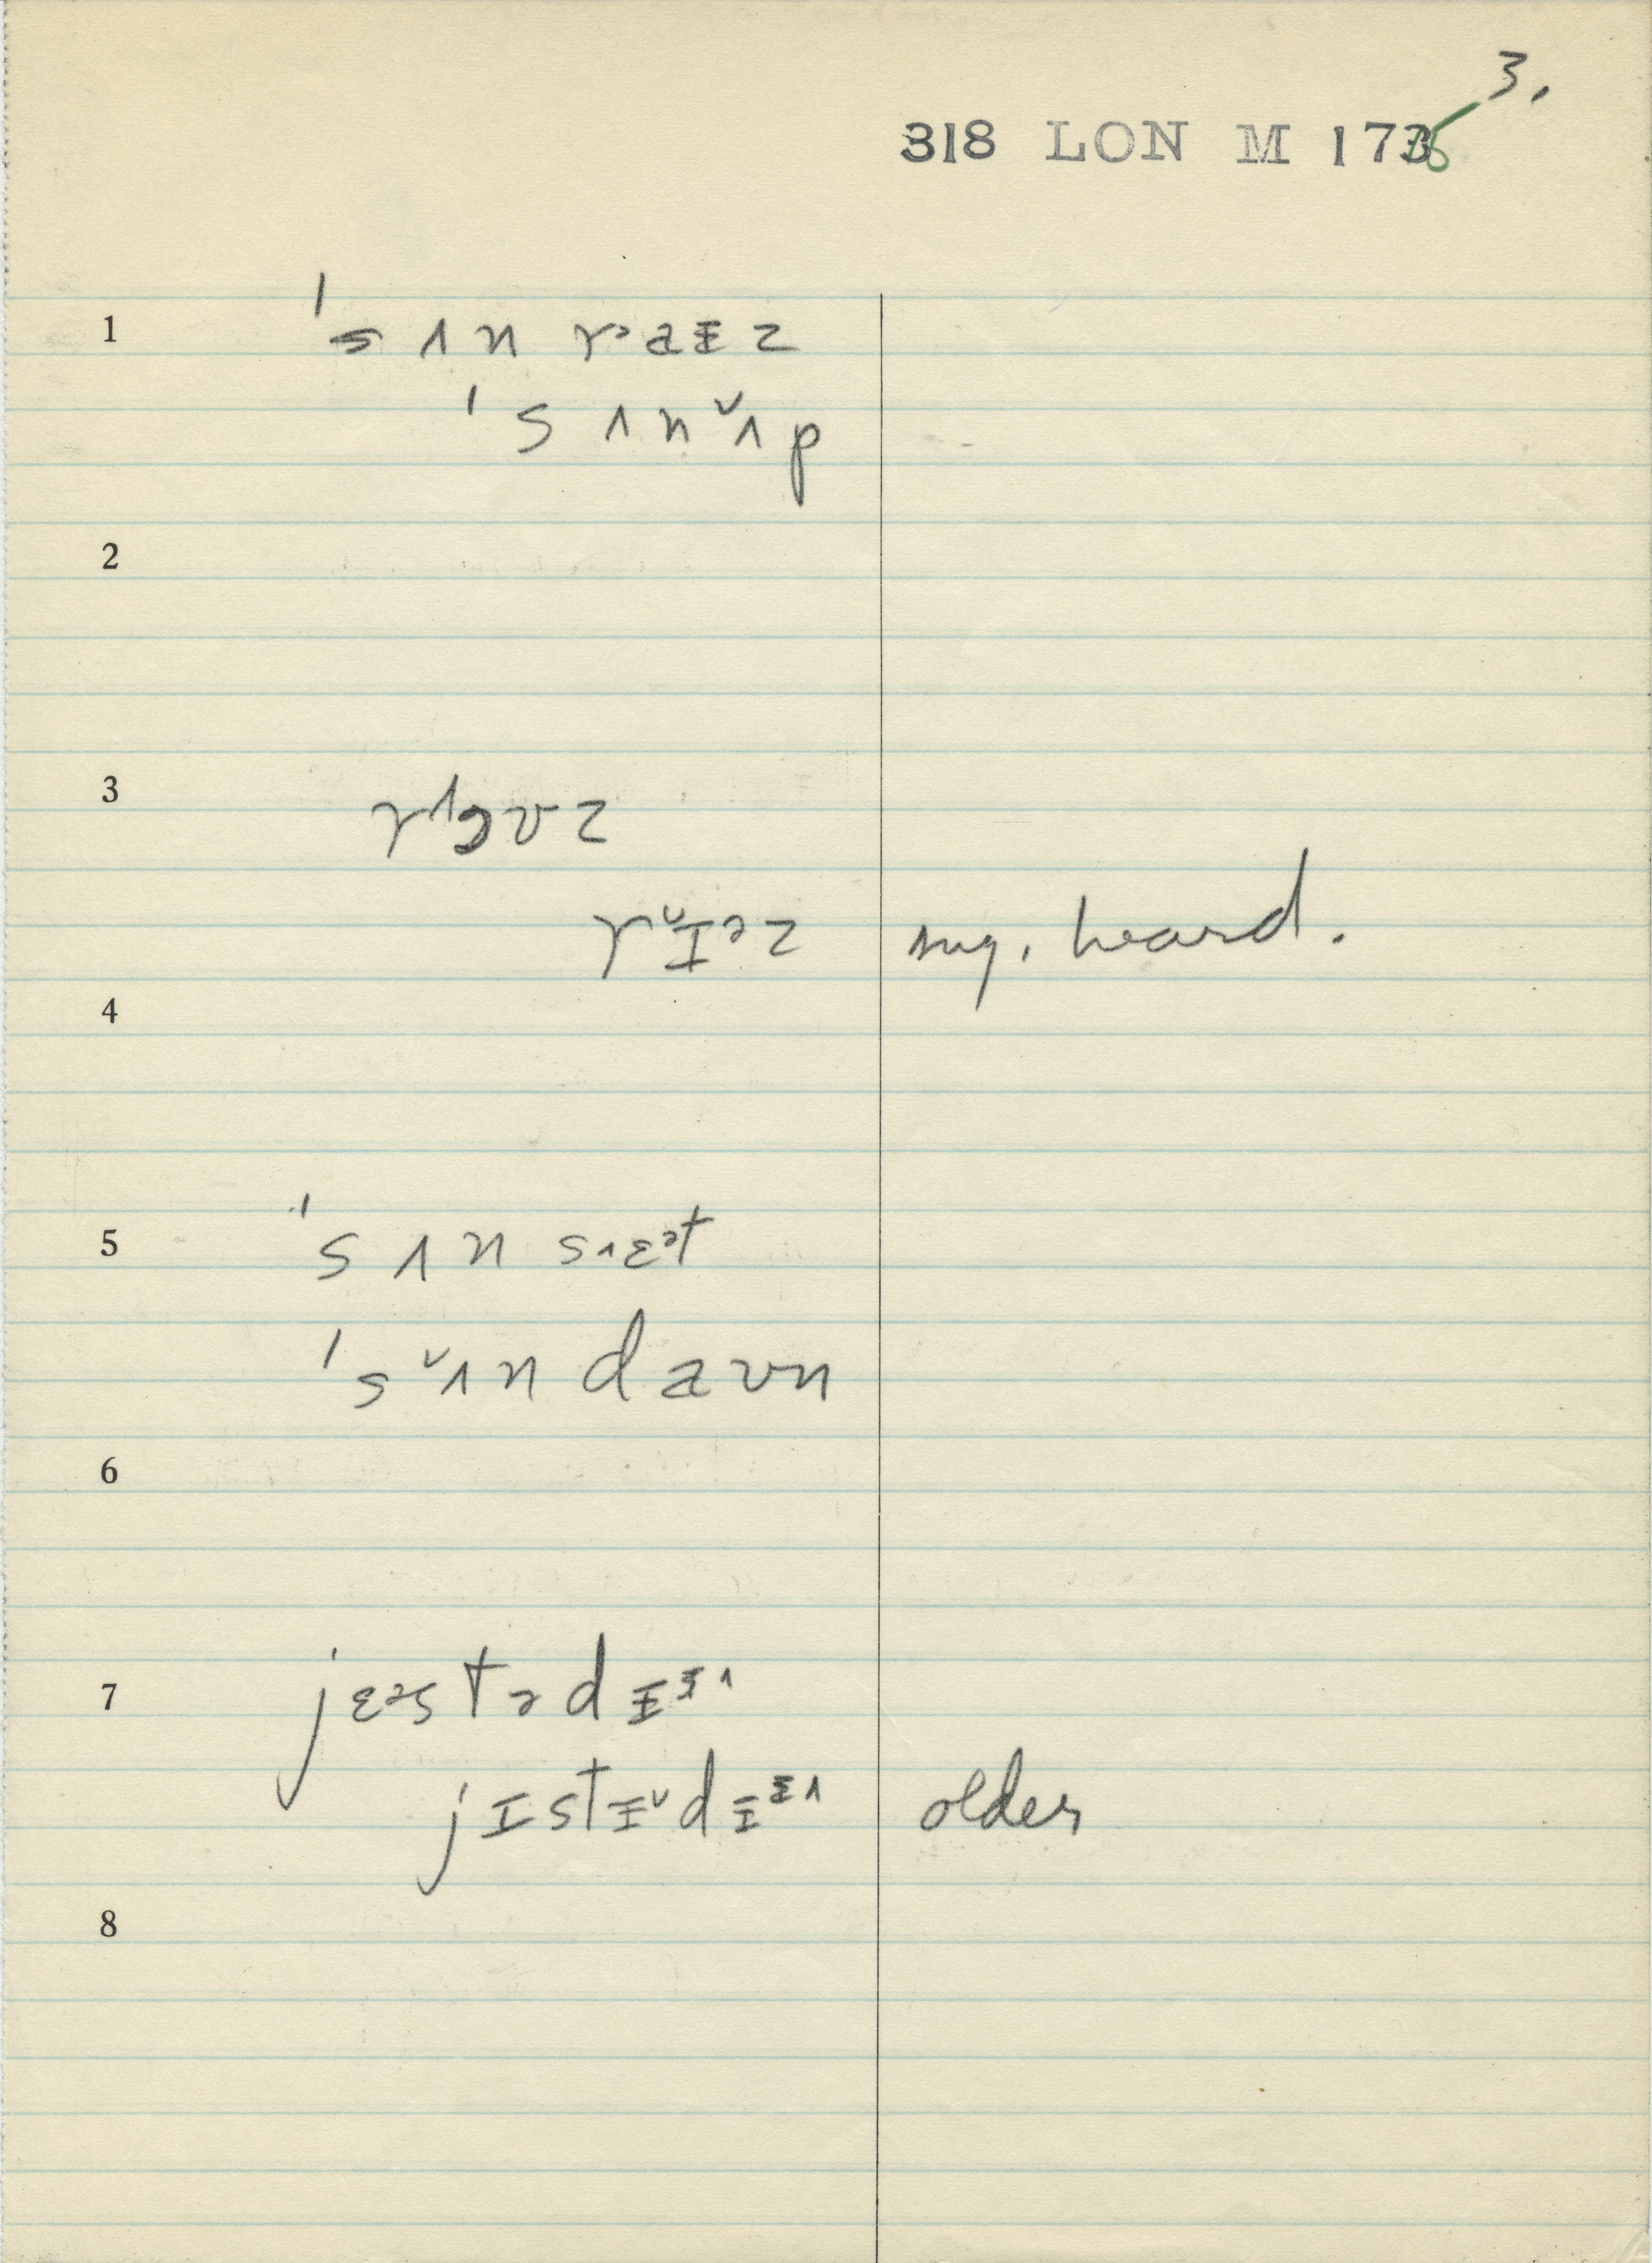 3.
318 LON M 175
1 ˈs ʌ n rᵊ a ɨ z
ˈs ʌ n ˇʌ p
2
3
rˇɪᵊz sug. heard.
4
5 ˈs ʌ n sʌɛᵊt
ˈs ˇʌ n d a ʊ n
6
7 jɛᵊstədɨᶤ˄
jɪstɨˇdɨᶤ˄ older
8